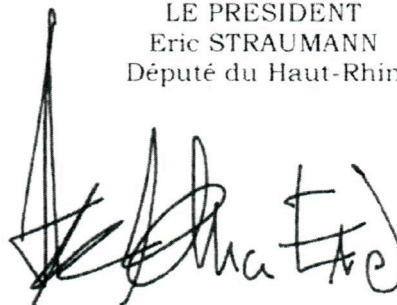 LE PRESIDENT
Eric STRAUMANN
Député du Haut-Rhin